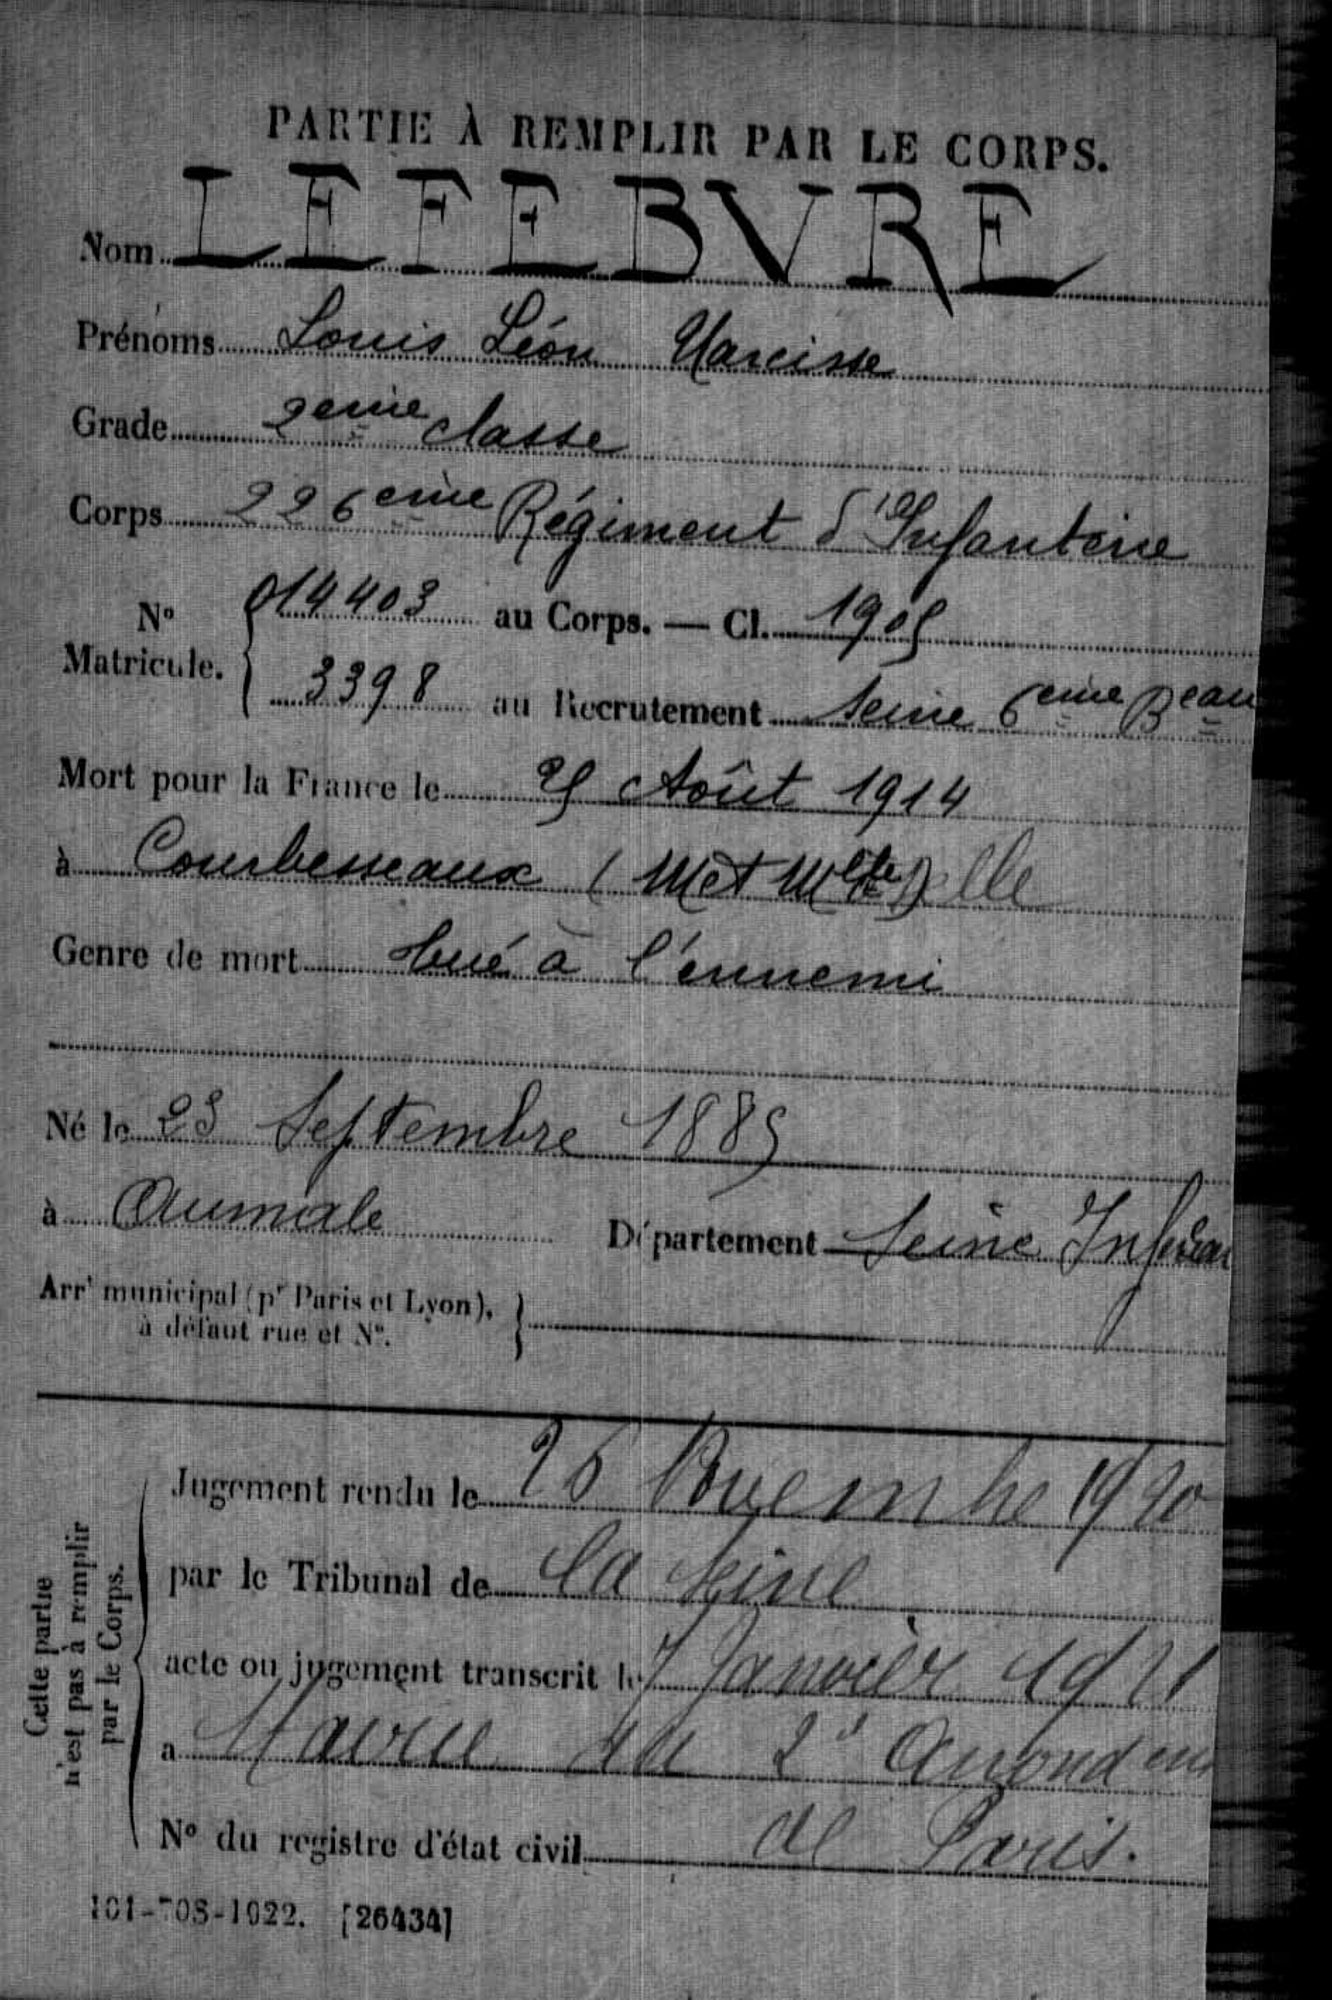 PARTIE À REMPLIR PAR LE CORPS.
Nom LEFEBVRE
Prénoms Louis Léon Narcisse
Grade 2eme classe
Corps 226eme Régiment d'Infanterie
N° Matricule. 014403 au Corps. — Cl. 1905
3398 au Recrutement Seine 6eme Beau
Mort pour la France le 25 Août 1914
à Courbesseaux (Met Mlle) elle
Genre de mort tué à l'ennemi
Né le 23 Septembre 1885
à Aumale Département Seine Infér
Arrt municipal (pr Paris et Lyon), à défaut rue et N°.
Cette partie n'est pas à remplir par le Corps.
Jugement rendu le 26 Novembre 1920
par le Tribunal de la Seine
acte ou jugement transcrit le 7 Janvier 1921
a Mairie du 2e Arrondem
de Paris.
N° du registre d'état civil
101-708-1922. [26434]